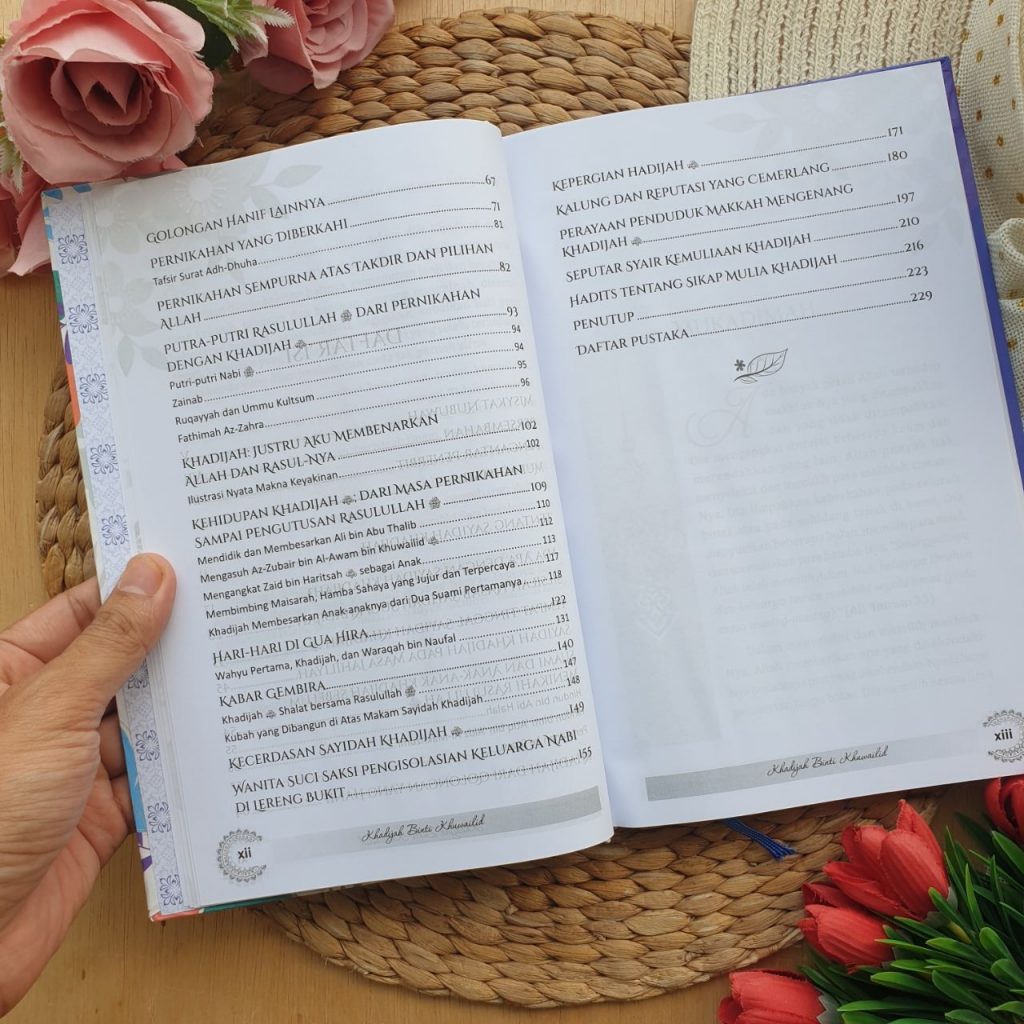 Golongan Hanif Lainnya ........ 67
Pernikahan yang Diberkahi ........ 71
Tafsir Surat Adh-Dhuha ........ 81
Pernikahan Sempurna atas Takdir dan Pilihan
Allah ........ 82
Putra-Putri Rasulullah ﷺ dari Pernikahan
dengan Khadijah ........ 93
Putri-putri Nabi ﷺ ........ 94
Zainab ........ 94
Ruqayyah dan Ummu Kultsum ........ 95
Fathimah Az-Zahra ........ 96
Khadijah: Justru Aku Membenarkan
Allah dan Rasul-Nya ........ 102
Ilustrasi Nyata Makna Keyakinan ........ 102
Kehidupan Khadijah : Dari Masa Pernikahan
Sampai Pengutusan Rasulullah ﷺ ........ 109
Mendidik dan Membesarkan Ali bin Abu Thalib ........ 110
Mengasuh Az-Zubair bin Al-Awam bin Khuwailid ........ 112
Mengangkat Zaid bin Haritsah sebagai Anak ........ 113
Membimbing Maisarah, Hamba Sahaya yang Jujur dan Terpercaya ........ 117
Khadijah Membesarkan Anak-anaknya dari Dua Suami Pertamanya ........ 118
Hari-Hari di Gua Hira ........ 122
Wahyu Pertama, Khadijah, dan Waraqah bin Naufal ........ 131
Kabar Gembira ........ 140
Khadijah Shalat bersama Rasulullah ﷺ ........ 147
Kubah yang Dibangun di Atas Makam Sayidah Khadijah ........ 148
Kecerdasan Sayidah Khadijah ........ 149
Wanita Suci Saksi Pengisolasian Keluarga Nabi
di Lereng Bukit ........ 155
xii
Khadijah Binti Khuwailid
Kepergian Hadijah ........ 171
Kalung dan Reputasi yang Cemerlang ........ 180
Perayaan Penduduk Makkah Mengenang
Khadijah ........ 197
Seputar Syair Kemuliaan Khadijah ........ 210
Hadits tentang Sikap Mulia Khadijah ........ 216
Penutup ........ 223
Daftar Pustaka ........ 229
Khadijah Binti Khuwailid
xiii